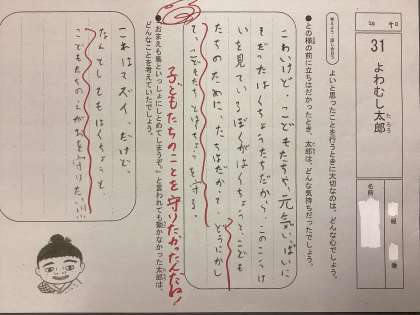 月 日
31 よわむし太郎
たろう
名前
組 番
考えよう・話し合おう
よいと思ったことを行うときに大切なのは、どんな心でしょう。
●との様の前に立ちはだかったとき、太郎は、どんな気持ちだったでしょう。
こわいけど、こどもたちや、元気いっぱいに
そだったはくちょうたちだから、このこうけ
いを見ているぼくがはくちょうと、こども
たちのために、たちはだかって、どうにかし
て、こどもたちとはくちょうを守る。
子どもたちのことを守りたかったんだね!
●「おまえも鳥といっしょにしとめてしまうぞ。」と言われても動かなかった太郎は、
どんなことを考えていたでしょう。
これはマズイ、だけど、
なんとしてもはくちょうと、
こどもたちのえがおを守りたい…